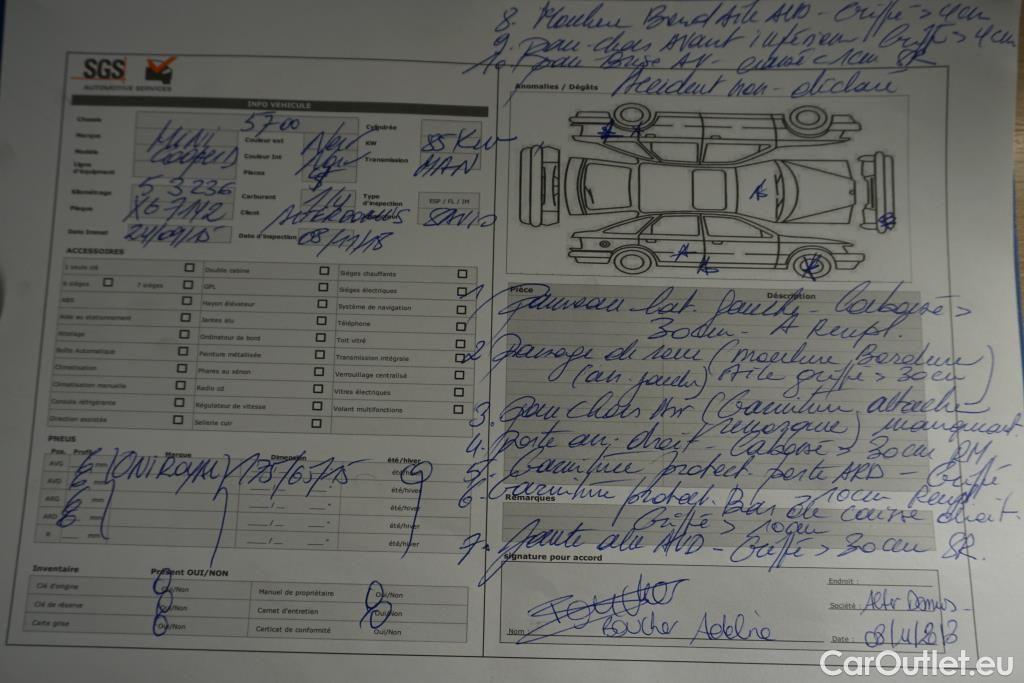 8. Moulure Bord Aile AVD - Griffé > 4cm
9. pare-chocs Avant inférieur Griffé > 4cm
10. pare-Brise AV - < 1cm SR
Accident non-déclaré
SGS
AUTOMOTIVE SERVICES
INFO VEHICULE
Chassis 5700
Marque MINI Couleur ext Noir Cylindrée
Modèle Cooper D Couleur Int Noir KW 85 KW
Ligne d'équipement Places Transmission MAN
Kilométrage 53236 Carburant Type d'inspection ESP / FL / IM
Plaque Client
Date Immat 24/09/15 Date d'inspection 08/11/18
ACCESSOIRES
1 seule clé Double cabine Sièges chauffants
6 sièges 7 sièges GPL Sièges électriques
ABS Hayon élévateur Système de navigation
Aide au stationnement Jantes alu Téléphone
Attelage Ordinateur de bord Toit vitré
Boîte Automatique Peinture métallisée Transmission intégrale
Climatisation Phares au xénon Verrouillage centralisé
Climatisation manuelle Radio cd Vitres électriques
Console réfrigérante Régulateur de vitesse Volant multifonctions
Direction assistée Sellerie cuir
PNEUS
Pos. Profil Marque Dimension été/hiver
AVG 6 mm 175/65/15 été/hiver
AVD mm été/hiver
ARG mm été/hiver
ARD 6 mm été/hiver
R mm été/hiver
Inventaire Présent OUI/NON
Clé d'origine Oui/Non Manuel de propriétaire Oui/Non
Clé de réserve Oui/Non Carnet d'entretien Oui/Non
Carte grise Oui/Non Certicat de conformité Oui/Non
Anomalies / Dégâts
Pièce Déscription
1. panneau lat. Gauche - Cabossé >
30cm - A Rempl.
2 passage de roue (moulure Bordure
(arr. gauche) Aile griffé > 30cm
3. pare chocs Arr (Garniture attache
remorque) manquant.
4. Porte arr. droit - Cabossé > 30cm
5. Garniture protect. porte ARD - Griffé
> 10cm Rempl.
6. Garniture protect. Bas de caisse droit.
Griffé > 10cm
Remarques
7. Jante alu AVD - Griffé > 30cm SR.
signature pour accord
Endroit :
Société : Alter Domus
Nom : Boucher Adeline
Date : 08/11/2018
CarOutlet.eu